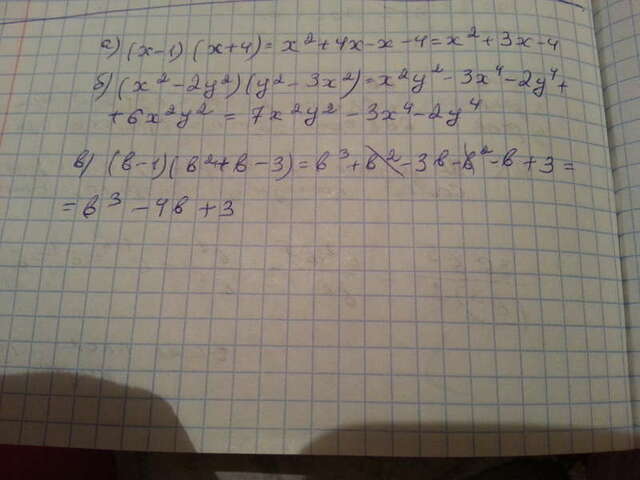 а) (x-1) (x+4) = x²+4x-x-4 = x²+3x-4
б) (x²-2y²)(y²-3x²)=x²y²-3x⁴-2y⁴+
+6x²y² = 7x²y²-3x⁴-2y⁴
в) (в-1)(в²+в-3)=в³+в²-3в-в²-в+3=
=в³-4в+3